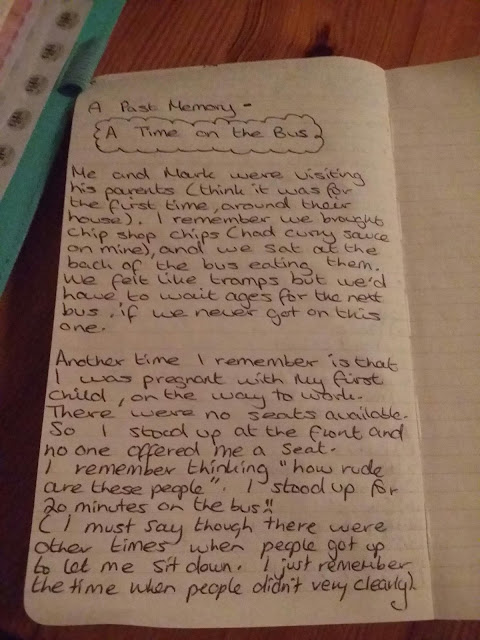 A Past Memory -
A Time on the Bus
Me and Mark were visiting
his parents (think it was for
the first time, around their
house). I remember we brought
chip shop chips (had curry sauce
on mine), and we sat at the
back of the bus eating them.
We felt like tramps but we'd
have to wait ages for the next
bus, if we never got on this
one.
Another time I remember is that
I was pregnant with my first
child, on the way to work.
There were no seats available.
So I stood up at the front and
no one offered me a seat.
I remember thinking "how rude
are these people". I stood up for
20 minutes on the bus!!
( I must say though there were
other times when people got up
to let me sit down. I just remember
the time when people didn't very clearly)